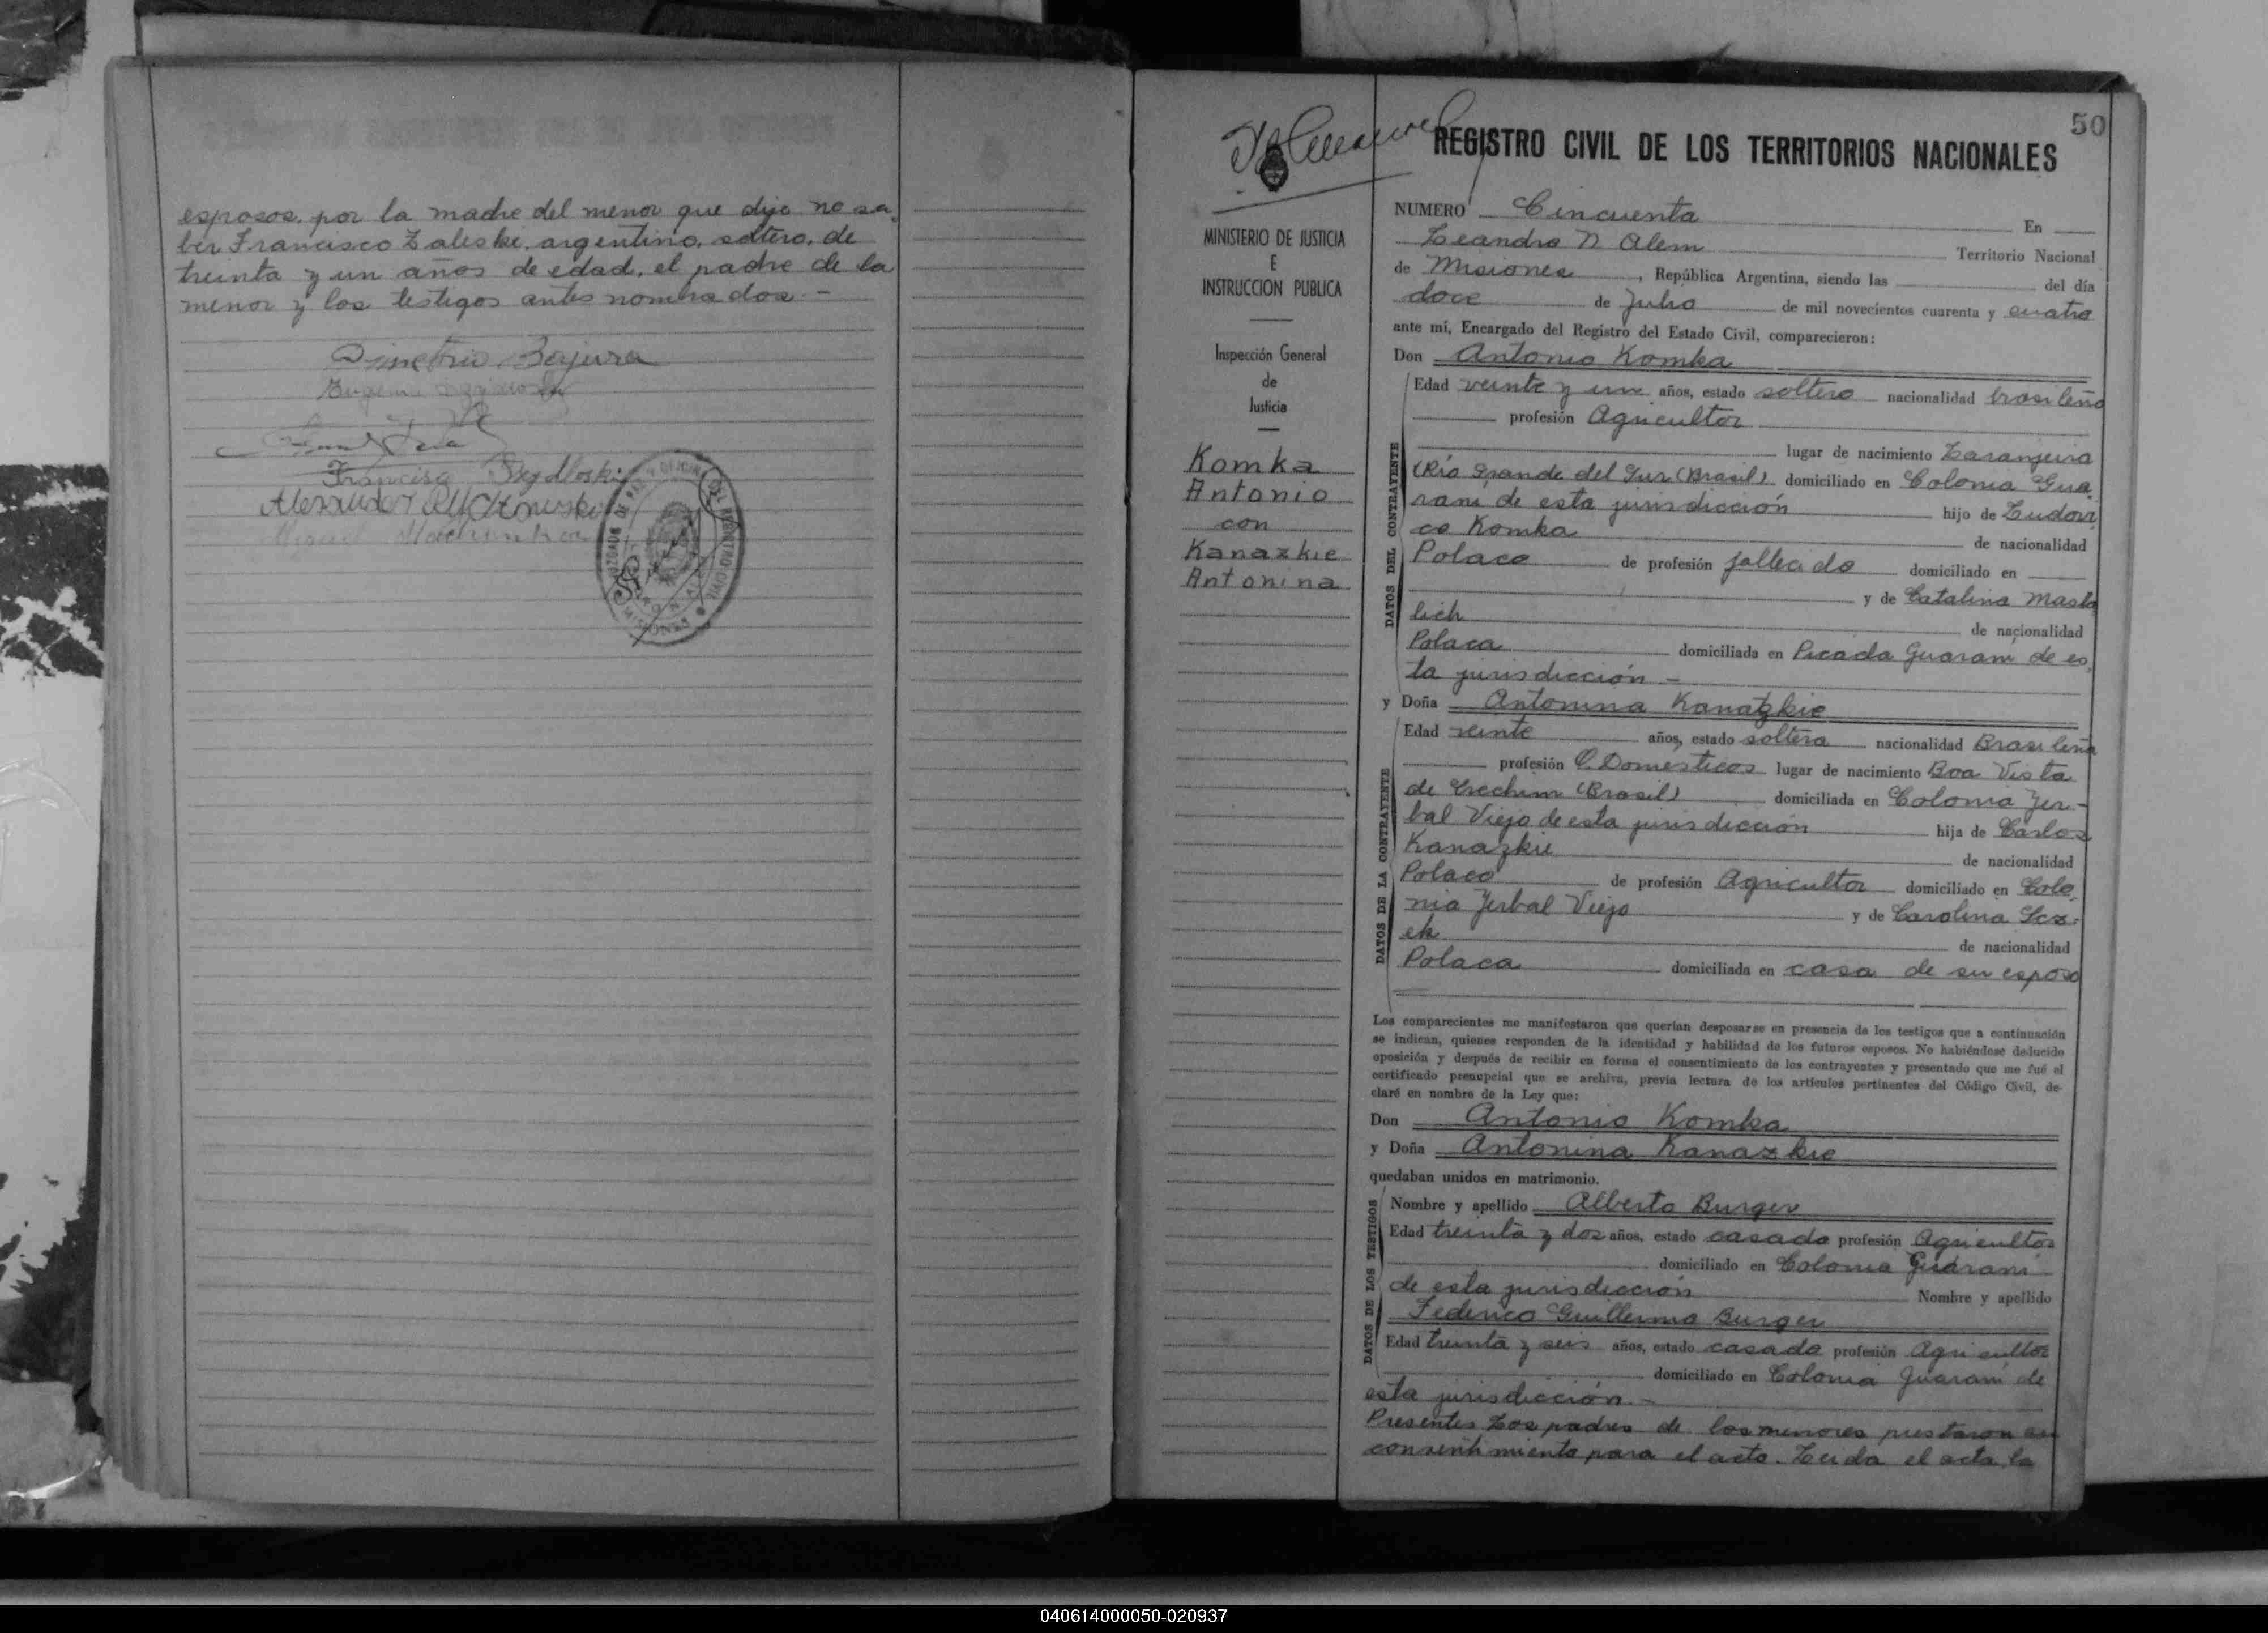 esposos, por la madre del menor que dijo no sa-
ber Francisco Zaleski, argentino, soltero, de
treinta y un años de edad, el padre de la
menor y los testigos antes nombrados.-
Dimetrio Bajura
Eugenia
Francisco
Alexander
Miguel
50
REGISTRO CIVIL DE LOS TERRITORIOS NACIONALES
MINISTERIO DE JUSTICIA
E
INSTRUCCION PUBLICA
Inspección General
de
Justicia
Komka
Antonio
con
Kanazkie
Antonina
NUMERO Cincuenta En
Leandro N Alem Territorio Nacional
de Misiones, República Argentina, siendo las del día
doce de Julio de mil novecientos cuarenta y cuatro
ante mí, Encargado del Registro del Estado Civil, comparecieron:
Don Antonio Komka
DATOS DEL CONTRAYENTE
Edad veinte y un años, estado soltero nacionalidad brasileño
profesión Agricultor
lugar de nacimiento Laranjeira
(Río Grande del Sur (Brasil) domiciliado en Colonia Gua-
raní de esta jurisdicción hijo de Ludovi-
co Komka de nacionalidad
Polaco de profesión fallecido domiciliado en
y de Catalina Masla
lich de nacionalidad
Polaca domiciliada en Picada Guaraní de es-
ta jurisdicción.-
y Doña Antonina Kanazkie
DATOS DE LA CONTRAYENTE
Edad veinte años, estado soltera nacionalidad Brasileña
profesión Q. Domésticos lugar de nacimiento Boa Vista
de Erechim (Brasil) domiciliada en Colonia Yer-
bal Viejo de esta jurisdicción hija de Carlos
Kanazkie de nacionalidad
Polaco de profesión Agricultor domiciliado en Colo-
nia Yerbal Viejo y de Carolina Scz-
ek de nacionalidad
Polaca domiciliada en casa de su esposo
Los comparecientes me manifestaron que querían desposarse en presencia de los testigos que a continuación
se indican, quienes responden de la identidad y habilidad de los futuros esposos. No habiéndose deducido
oposición y después de recibir en forma el consentimiento de los contrayentes y presentado que me fué el
certificado prenupcial que se archiva, previa lectura de los artículos pertinentes del Código Civil, de-
claré en nombre de la Ley que:
Don Antonio Komka
y Doña Antonina Kanazkie
quedaban unidos en matrimonio.
DATOS DE LOS TESTIGOS
Nombre y apellido Alberto Burger
Edad treinta y dos años, estado casado profesión Agricultor
domiciliado en Colonia Guaraní
de esta jurisdicción Nombre y apellido
Federico Guillermo Burger
Edad treinta y seis años, estado casado profesión Agricultor
domiciliado en Colonia Guaraní de
esta jurisdicción.-
Presentes Los padres de los menores prestaron su
consentimiento para el acto. Leida el acta la
040614000050-020937